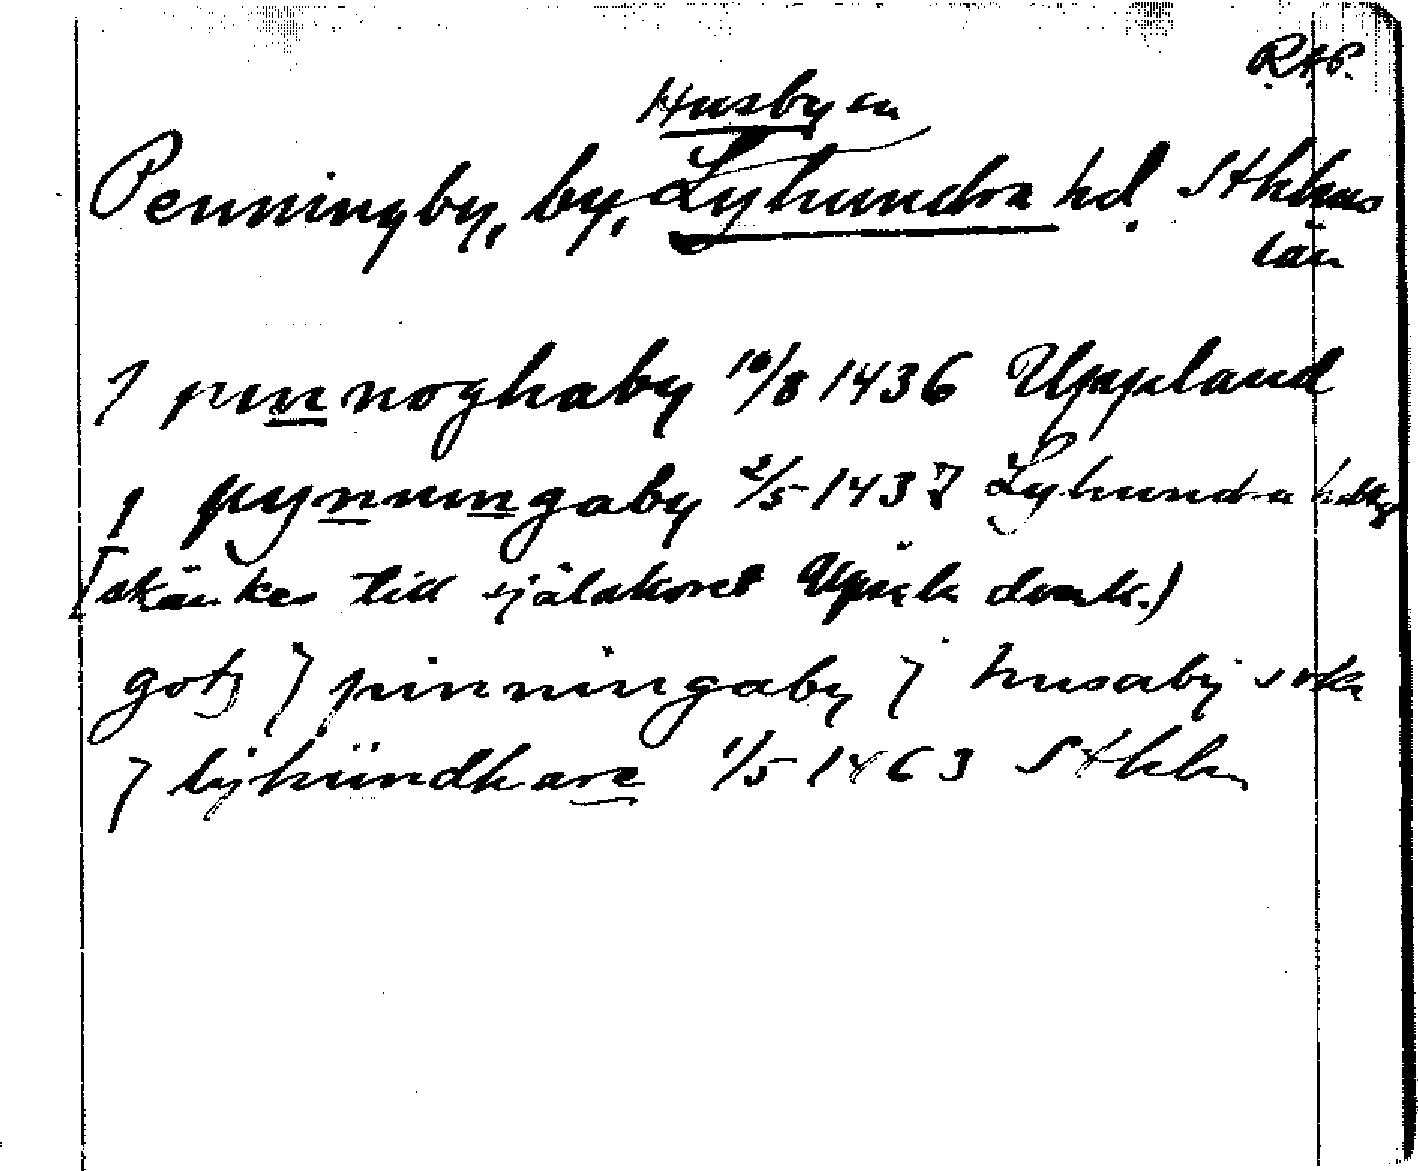 R.A.P.
Husby sn
Penningby, by, Lyhundra hd. Sthlms
län
J pinnoghaby 10/8 1436 Uppland
J pynnungaby 2/5 1437 Lyhundra
[skänkes till själakoret Upsala domk.)
gotz J pinningaby J husaby sokn
J lyhundhare 1/5 1463 Sthlm